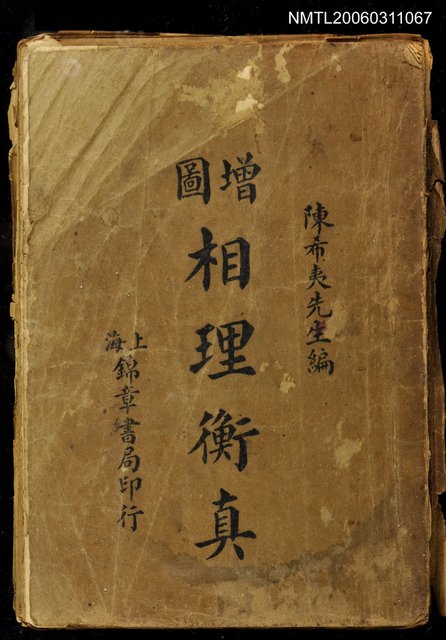 NMTL20060311067
陳希夷先生編
增圖
相理衡真
上海
錦章書局印行